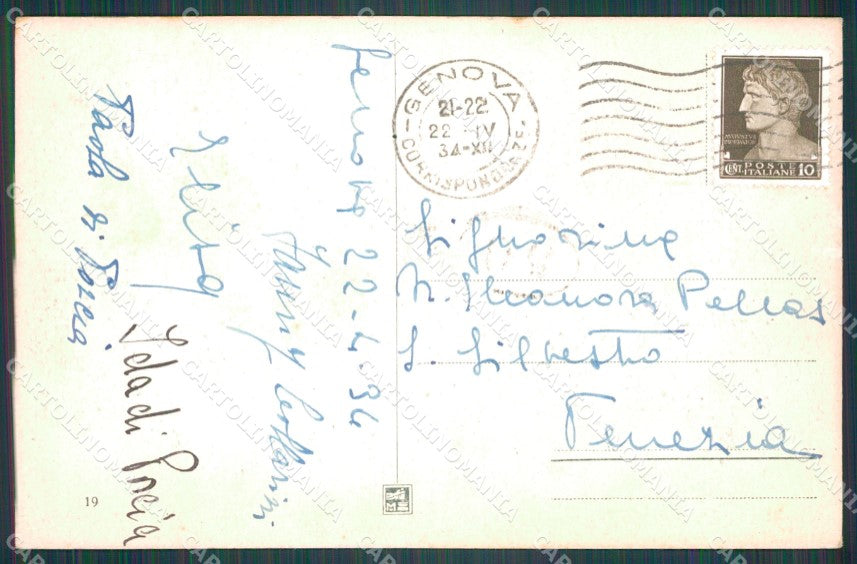 Genova 22-4-34
Fanny
Elisa
Ida di Porcia
Paola di Porcia
GENOVA
21-22
22 IV
34-XII
CORRISPONDENZE
POSTE
CENT. ITALIANE 10
Signorina
N. Eleonora Pellas
S. Silvestro
Venezia
19
CARTOLINOMANIA